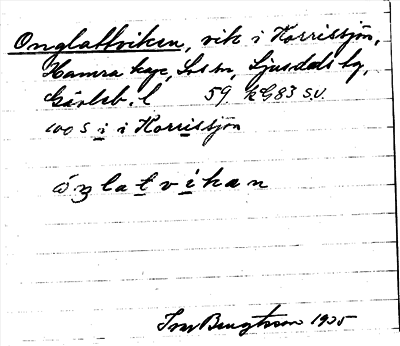 Onglattviken, vik i Korrissjön,
Hamra kap, Los sn, Ljusdals tg,
Gävleb. l 59 kG83 s.v.
100 S i i Korrissjön
óŋlatvikan
Bengtsson 1935